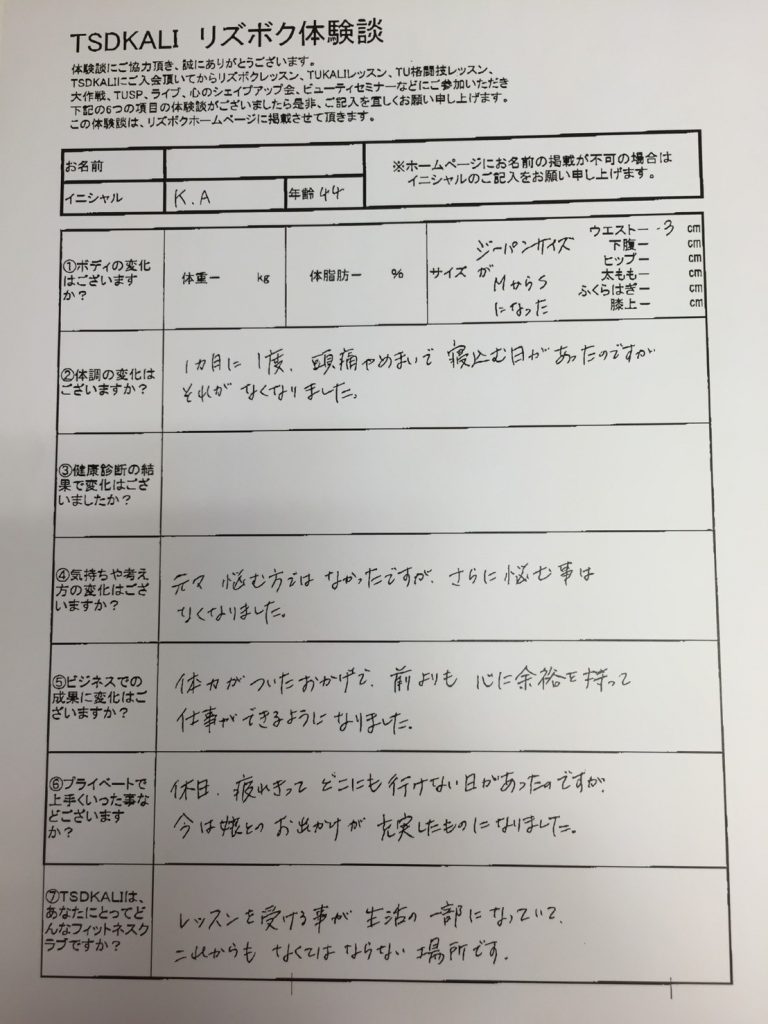 TSDKALI リズボク体験談
体験談にご協力頂き、誠にありがとうございます。
TSDKALIにご入会頂いてからリズボクレッスン、TUKALIレッスン、TU格闘技レッスン、
大作戦、TUSP、ライブ、心のシェイプアップ会、ビューティセミナーなどにご参加いただき
下記の6つの項目の体験談がございましたら是非、ご記入を宜しくお願い申し上げます。
この体験談は、リズボクホームページに掲載させて頂きます。
お名前
※ホームページにお名前の掲載が不可の場合は
イニシャルのご記入をお願い申し上げます。
イニシャル K.A 年齢 44
①ボディの変化
はございます
か?
体重ー kg
体脂肪ー %
サイズ
ジーパンサイズ
が
MからS
になった
ウエストー -3 cm
下腹ー cm
ヒップー cm
太ももー cm
ふくらはぎー cm
膝上ー cm
②体調の変化は
ございますか?
1カ月に1度、頭痛やめまいで寝込む日があったのですが
それがなくなりました。
③健康診断の結
果で変化はござ
いましたか?
④気持ちや考え
方の変化はござ
いますか?
元々悩む方ではなかったですが、さらに悩む事は
なくなりました。
⑤ビジネスでの
成果に変化はご
ざいますか?
体力がついたおかげで、前よりも心に余裕を持って
仕事ができるようになりました。
⑥プライベートで
上手くいった事な
どございます
か?
休日、疲れきってどこにも行けない日があったのですが、
今は娘とのお出かけが充実したものになりました。
⑦TSDKALIは、
あなたにとってど
んなフィットネスク
ラブですか?
レッスンを受ける事が生活の一部になっていて、
これからもなくてはならない場所です。